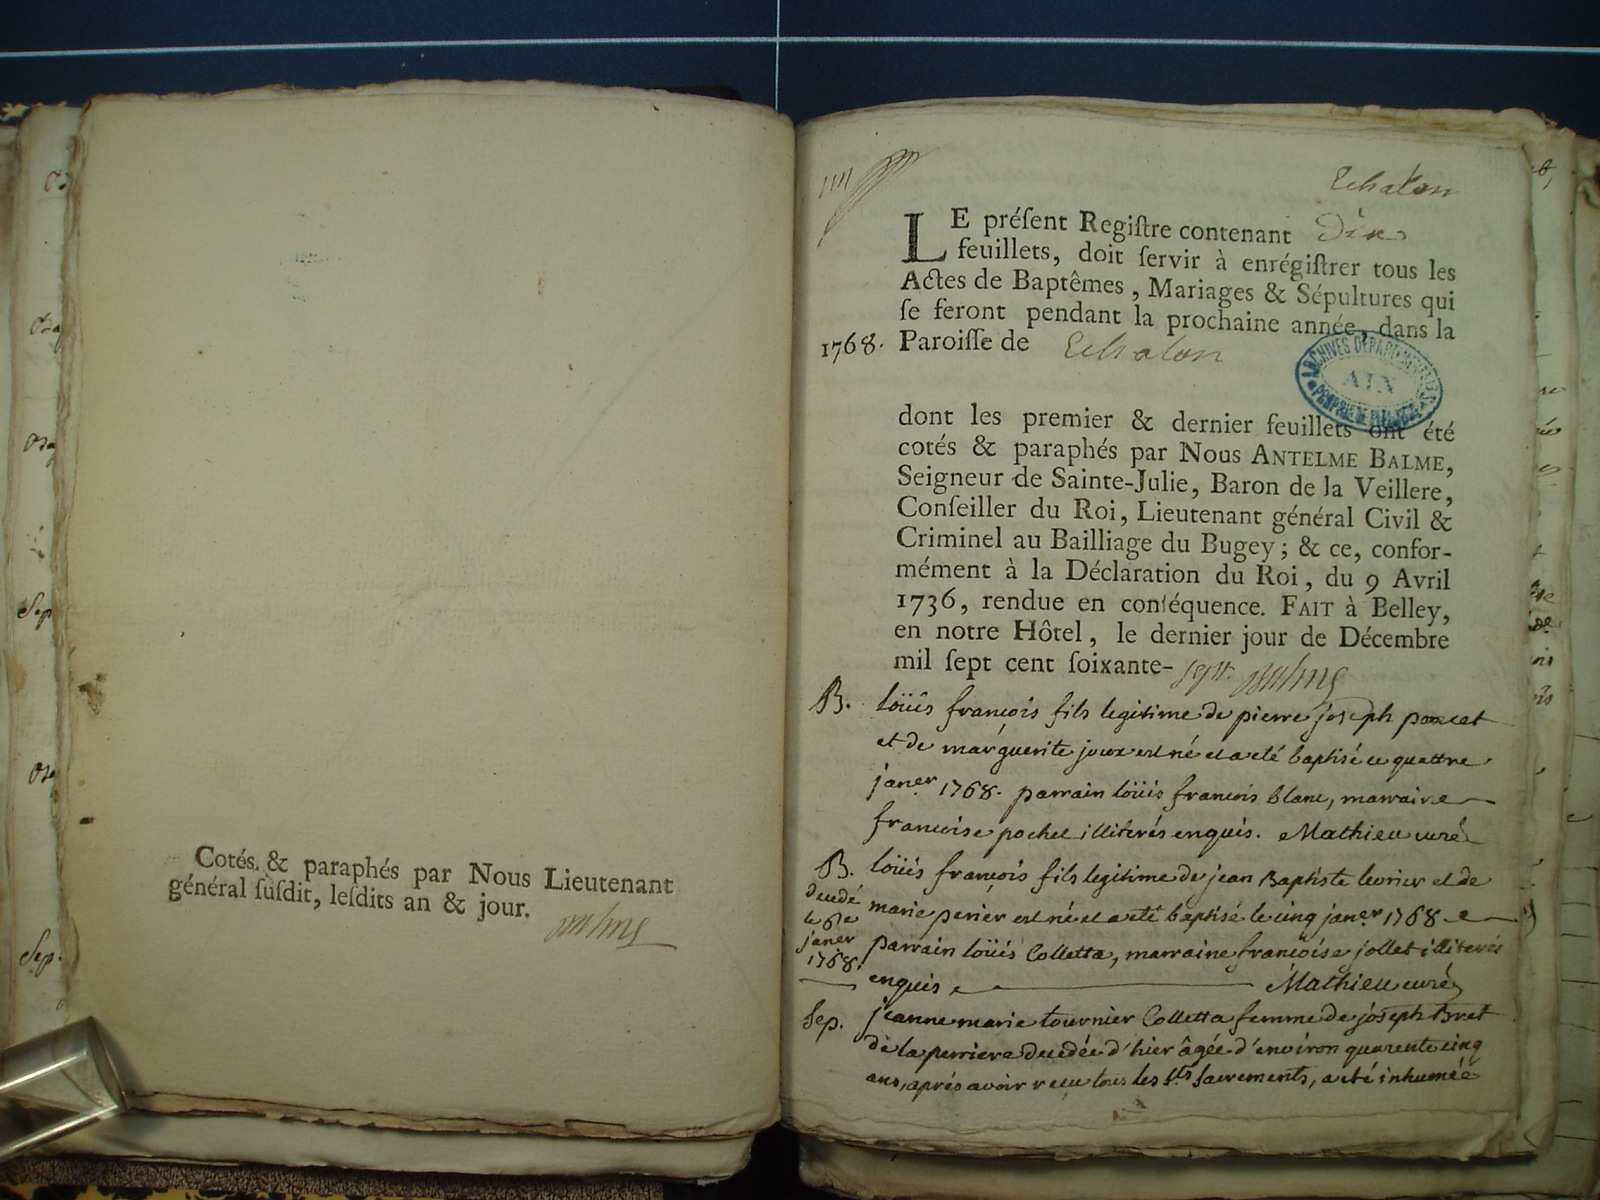 Cotés, & paraphés par Nous Lieutenant
général ſuſdit, leſdits an & jour.
Echalon
LE préſent Regiſtre contenant Dix
feuillets, doit ſervir à enrégiſtrer tous les
Actes de Baptêmes, Mariages & Sépultures qui
ſe feront pendant la prochaine année, dans la
1768. Paroiſſe de Echalon
ARCHIVES DEPARTEMENTALES
AIN
dont les premier & dernier feuillets ont été
cotés & paraphés par Nous ANTELME BALME,
Seigneur de Sainte-Julie, Baron de la Veillere,
Conſeiller du Roi, Lieutenant général Civil &
Criminel au Bailliage du Bugey; & ce, confor-
mément à la Déclaration du Roi, du 9 Avril
1736, rendue en conſéquence. FAIT à Belley,
en notre Hôtel, le dernier jour de Décembre
mil ſept cent ſoixante- sept
B. loüis françois fils legitime de pierre joseph poncet
et de marguerite joux est né et a eté baptisé ce quattre
janer 1768. parrain loüis francois blanc, marraine
francoise pochet illiterés enquis. Mathieu curé
B. loüis françois fils legitime de jean Baptiste levrier et de
marie perier est né et a eté baptisé le cinq janer 1768
decedé
le 6e
janer
1768
parrain loüis Colletta, marraine françoise jollet illiterés
enquis Mathieu curé
Sep. jeanne marie tournier Colletta femme de joseph Bret
de la perriere decedée d'hier âgée d'environ quarente cinq
ans, aprés avoir reçu tous les sts sacrements, a eté inhumée